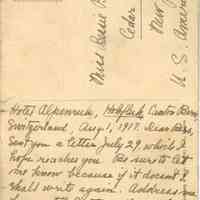 Miss Bessie
Cedar
New
U. S. Ameri
Hotel Alpenruh, Hohfluh, Canton Bern,
Switzerland, Aug 1, 1917. Dear Bess,
Sent you a letter July 29, which I
hope reaches you. Be sure to let
me know because if it doesn't I
shall write again. Address me